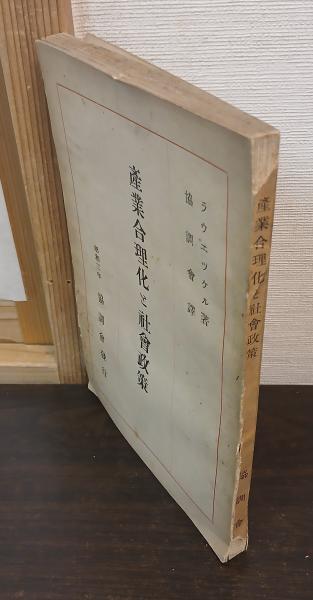 ラウエッケル著
協調會譯
產業合理化と社會政策
昭和三年 協調會發行
產業合理化と社會政策
協調會